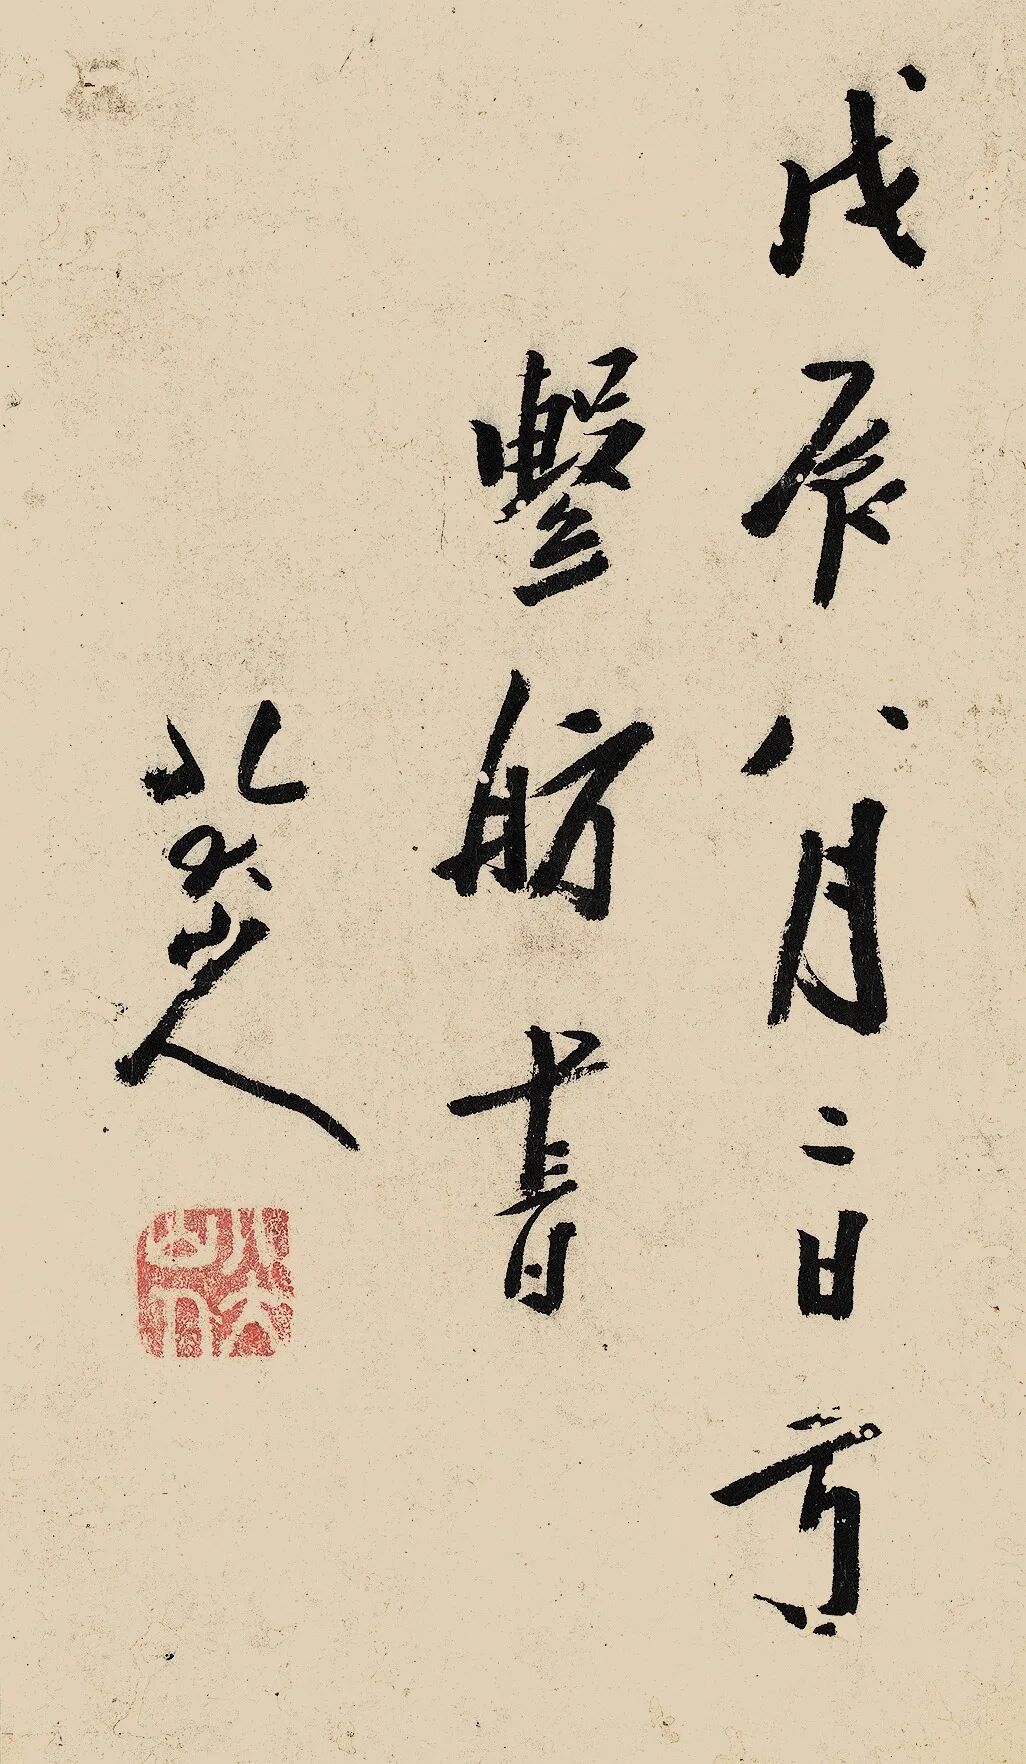 戊辰八月二日
繫舫書
八大山人
八大山人